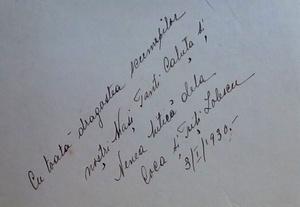 Cu toată dragostea scumpilor
noștri Nași Tanti Cabuța și
Nenea Mitică dela
Coca și Puiu Lobescu
3/I/1930.-